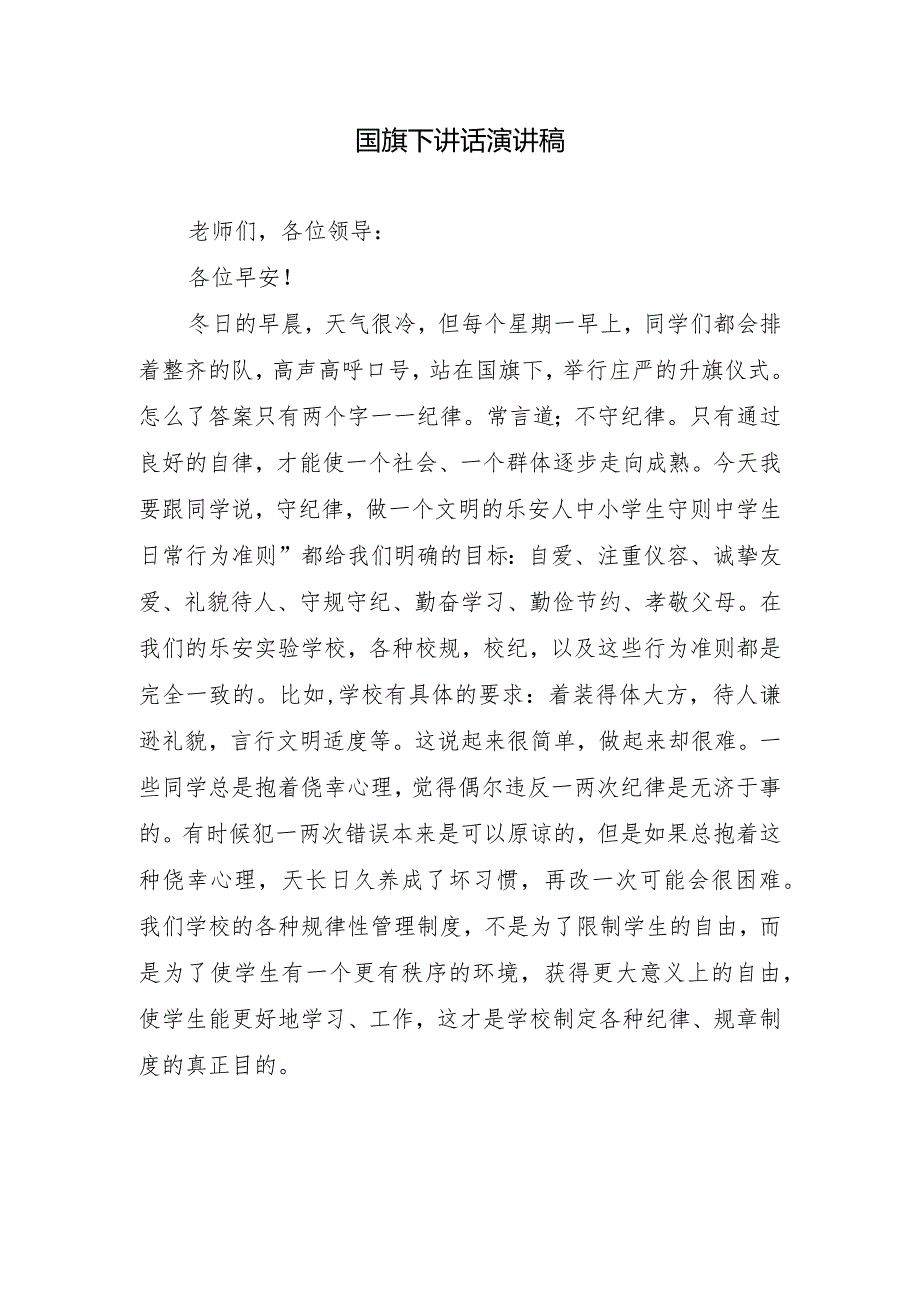 国旗下讲话演讲稿
老师们，各位领导：
各位早安！
冬日的早晨，天气很冷，但每个星期一早上，同学们都会排
着整齐的队，高声高呼口号，站在国旗下，举行庄严的升旗仪式。
怎么了答案只有两个字一一纪律。常言道；不守纪律。只有通过
良好的自律，才能使一个社会、一个群体逐步走向成熟。今天我
要跟同学说，守纪律，做一个文明的乐安人中小学生守则中学生
日常行为准则”都给我们明确的目标：自爱、注重仪容、诚挚友
爱、礼貌待人、守规守纪、勤奋学习、勤俭节约、孝敬父母。在
我们的乐安实验学校，各种校规，校纪，以及这些行为准则都是
完全一致的。比如,学校有具体的要求：着装得体大方，待人谦
逊礼貌，言行文明适度等。这说起来很简单，做起来却很难。一
些同学总是抱着侥幸心理，觉得偶尔违反一两次纪律是无济于事
的。有时候犯一两次错误本来是可以原谅的，但是如果总抱着这
种侥幸心理，天长日久养成了坏习惯，再改一次可能会很困难。
我们学校的各种规律性管理制度，不是为了限制学生的自由，而
是为了使学生有一个更有秩序的环境，获得更大意义上的自由，
使学生能更好地学习、工作，这才是学校制定各种纪律、规章制
度的真正目的。